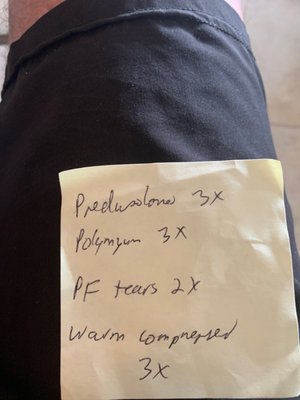 Prednisolone 3x
Polymyxin 3x
PF tears 2x
Warm compressed
3x